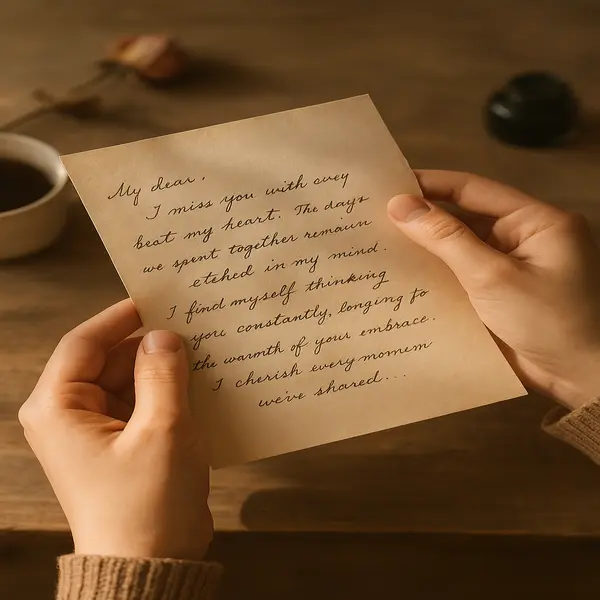 My dear,
I miss you with avey
beat my heart. The days
we spent together remaiun
etched in my mind.
I find myself thinking
you constantly, longing fo
the warmth of your embrace.
I cherish every momem
we've shared...